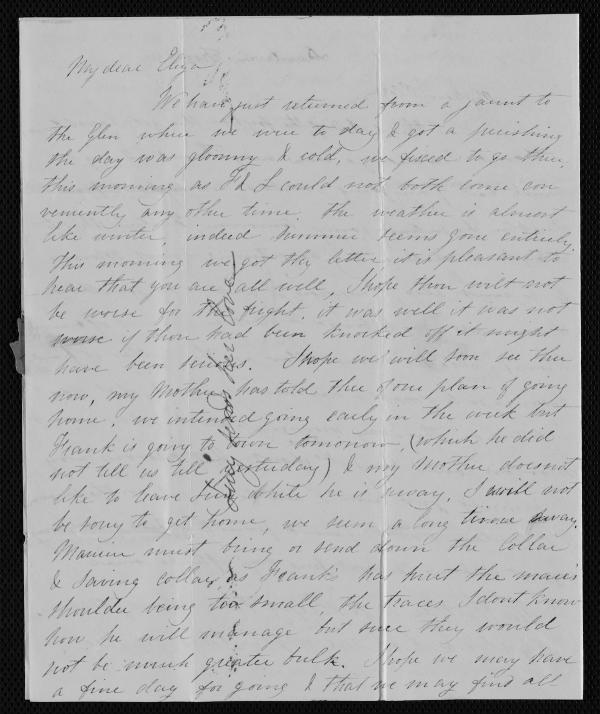 My dear Eliza
We have just returned from a jaunt to
the Glen where we were to day & got a perishing
the day was gloomy & cold, we fixed to go there
this morning as F & I could not both come con
veniently any other time. the weather is almost
like winter, indeed summer seems gone entirely.
This morning we got thy letter it is pleasant to
hear that you are all well, I hope thou wilt not
be worse for the fright, it was well it was not
worse if thou had been knocked off it might
have been serious. I hope we will soon see thee
now, my Mother has told thee of our plan of going
home, we intended going early in the week but
Frank is going to town tomorrow, (which he did
not tell us till yesterday) & my Mother doesn't
like to leave while he is away, I will not
be sorry to get home, we seem a long time away.
must bring or send down the Collar
& collar, as Frank's has hurt the mare's
shoulder being too small, the traces I dont know
how he will manage but sure they would
not be much greater bulk. I hope we may have
a fine day for going & that we may find all
Lucy sends her love